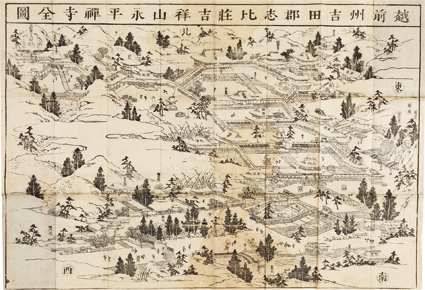 越前州吉田郡志比莊吉祥山永平禪寺全圖
北
東
西
南